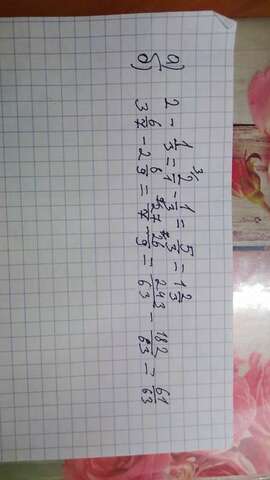 а) 2 - 1/3 = 3\2/1 - 1/3 = 5/3 = 1 2/3
б) 3 6/7 - 2 6/9 = 27/7 - 26/9 = 243/63 - 182/63 = 61/63